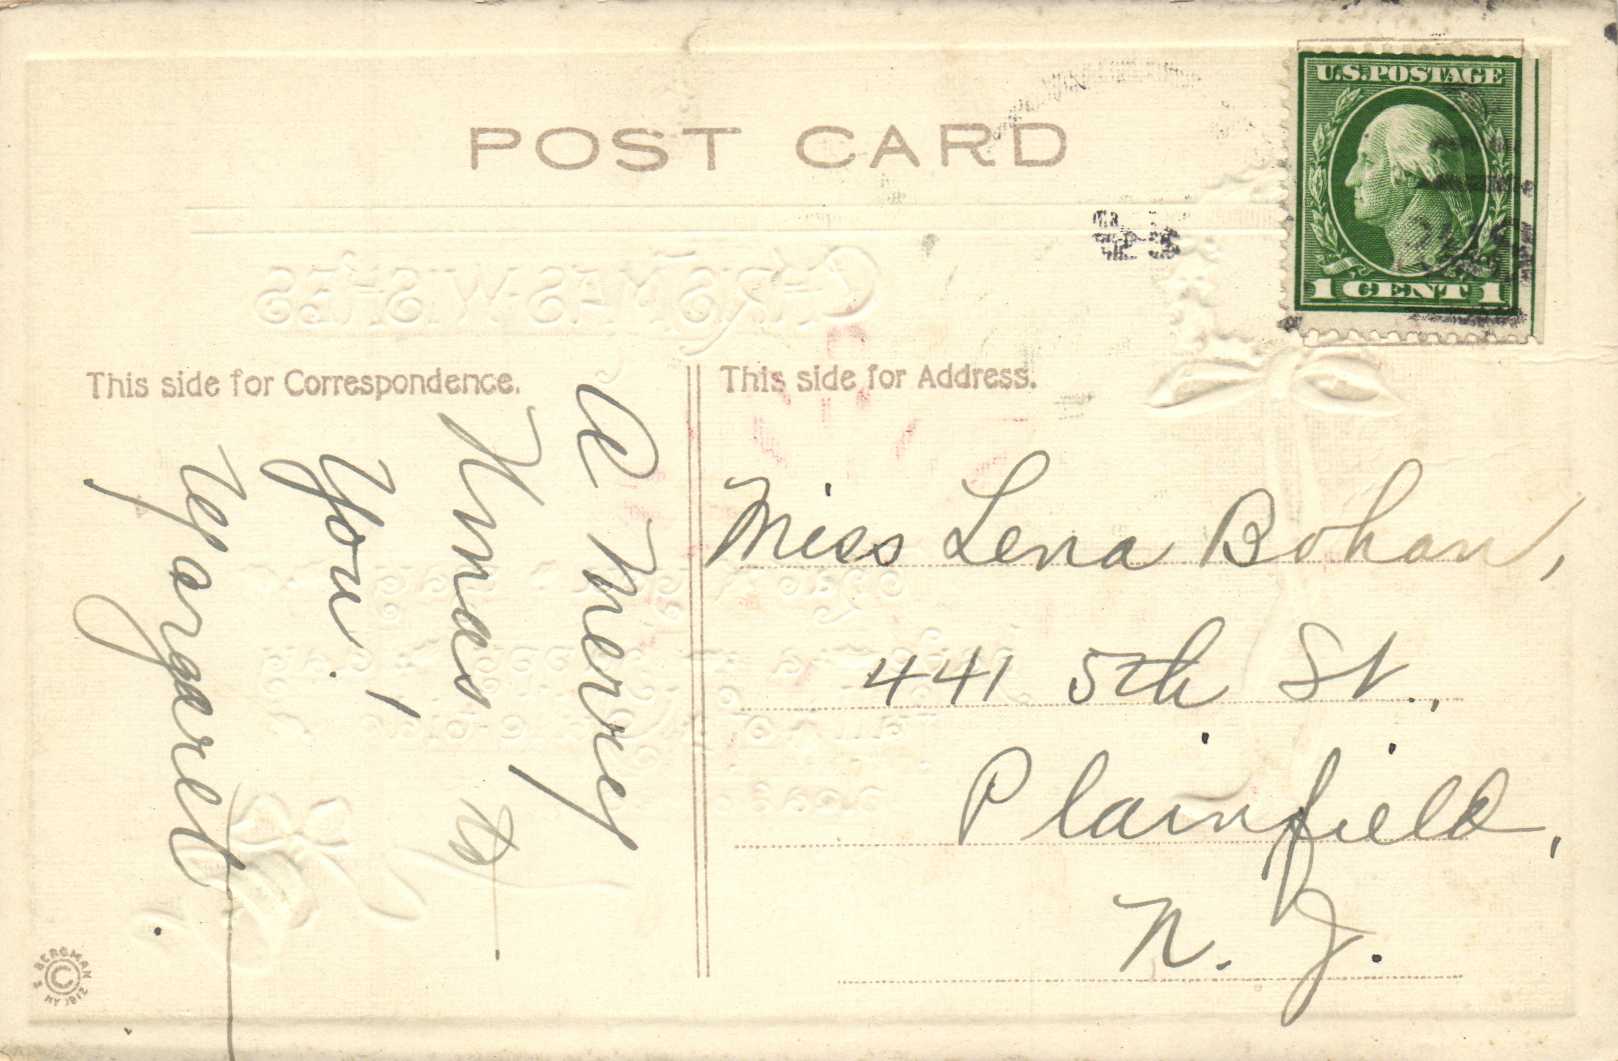 POST CARD
U.S. POSTAGE
1 CENT 1
CHRISTMAS WISHES
This side for Correspondence.
This side for Address.
A Merry
Xmas to
You!
Margaret.
Miss Lena Bohan,
441 5th St.,
Plainfield,
N. J.
© BERGMAN 1912 NY